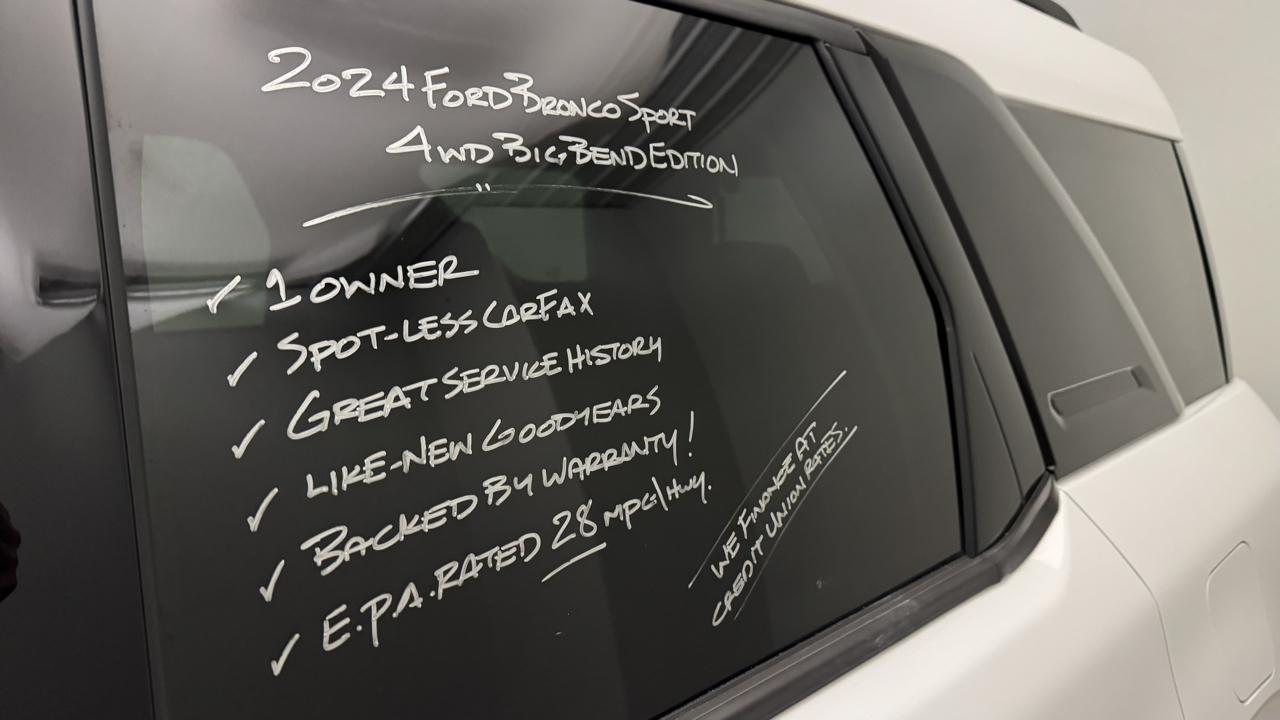 2024 FORD BRONCO SPORT
4WD BIG BEND EDITION
1 OWNER
SPOT-LESS CARFAX
GREAT SERVICE HISTORY
LIKE-NEW GOODYEARS
BACKED BY WARRANTY!
E.P.A. RATED 28 MPG/HWY.
WE FINANCE AT
CREDIT UNION RATES.